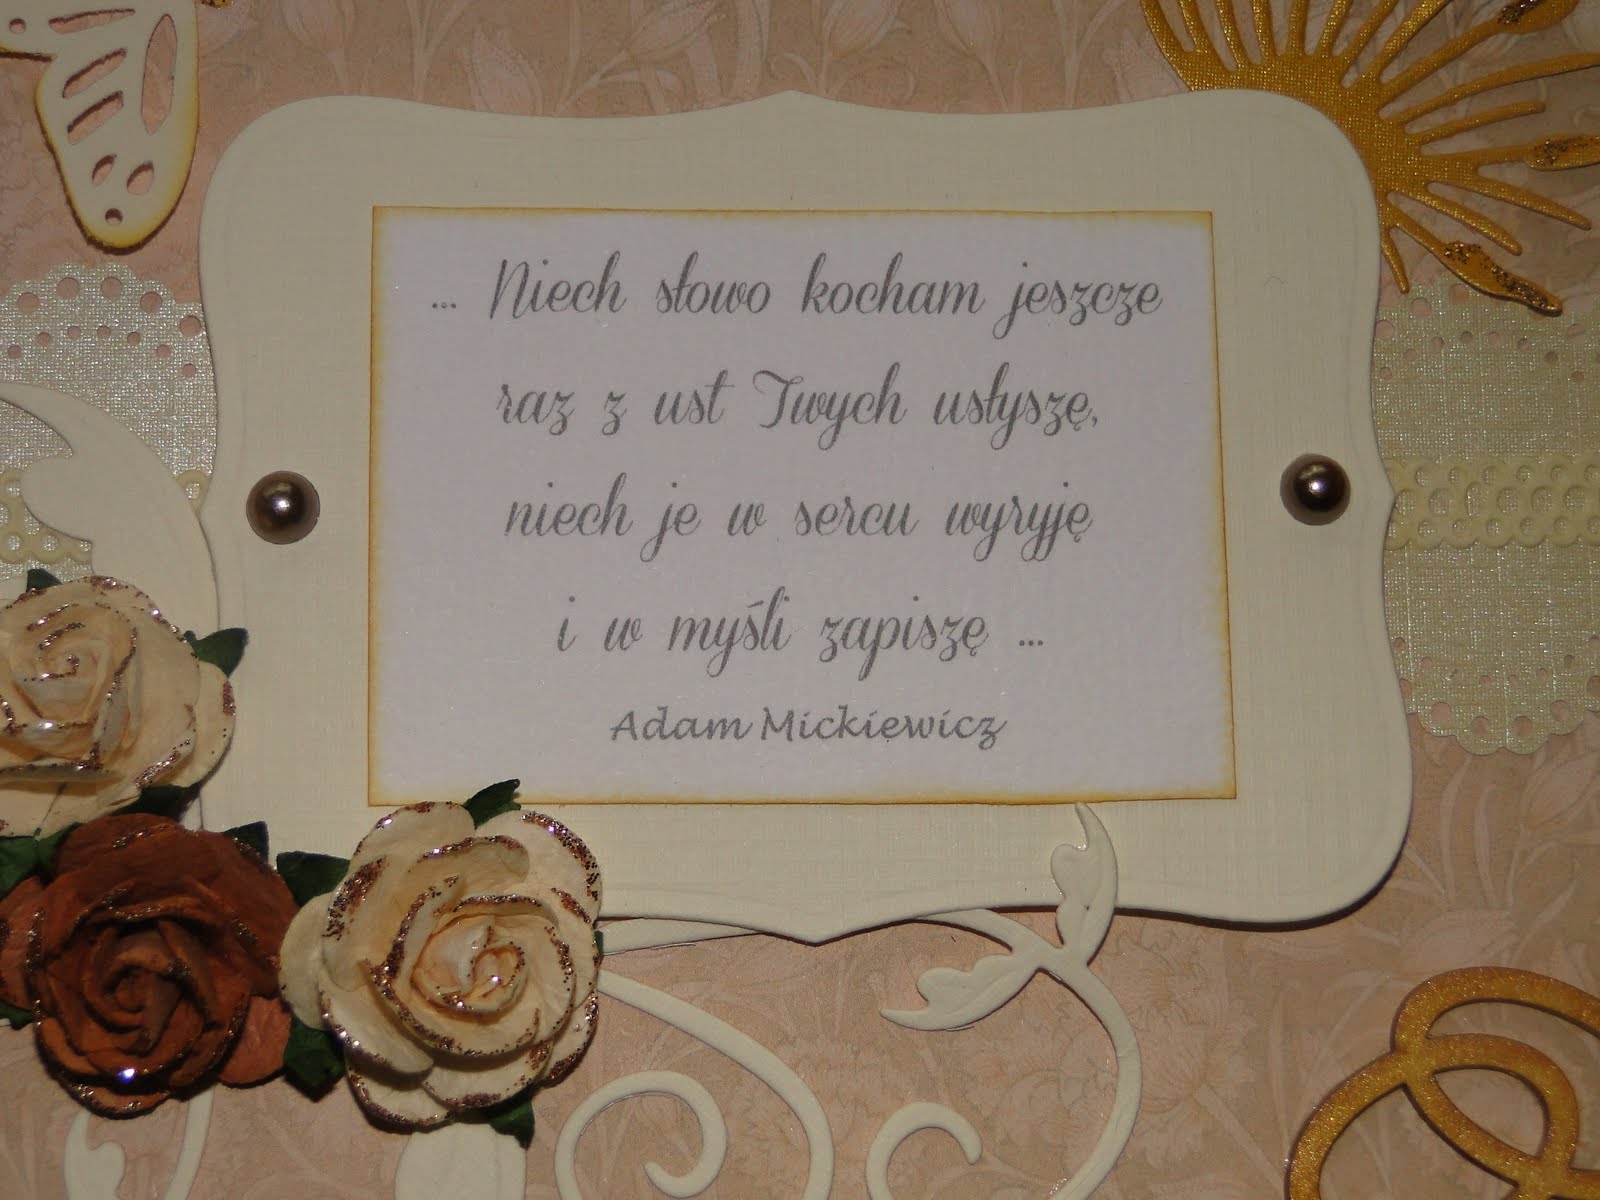 ... Niech słowo kocham jeszcze
raz z ust Twych usłyszę,
niech je w sercu wyryję
i w myśli zapiszę ...
Adam Mickiewicz